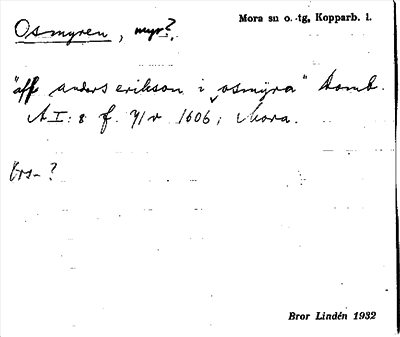 Osmyren, myr?.
Mora sn o. -tg, Kopparb. l.
"aff anders erikson i osmÿra" Domb.
A I: 8 f. 71 v 1606; Mora.
Ors- ?
Bror Lindén 1932